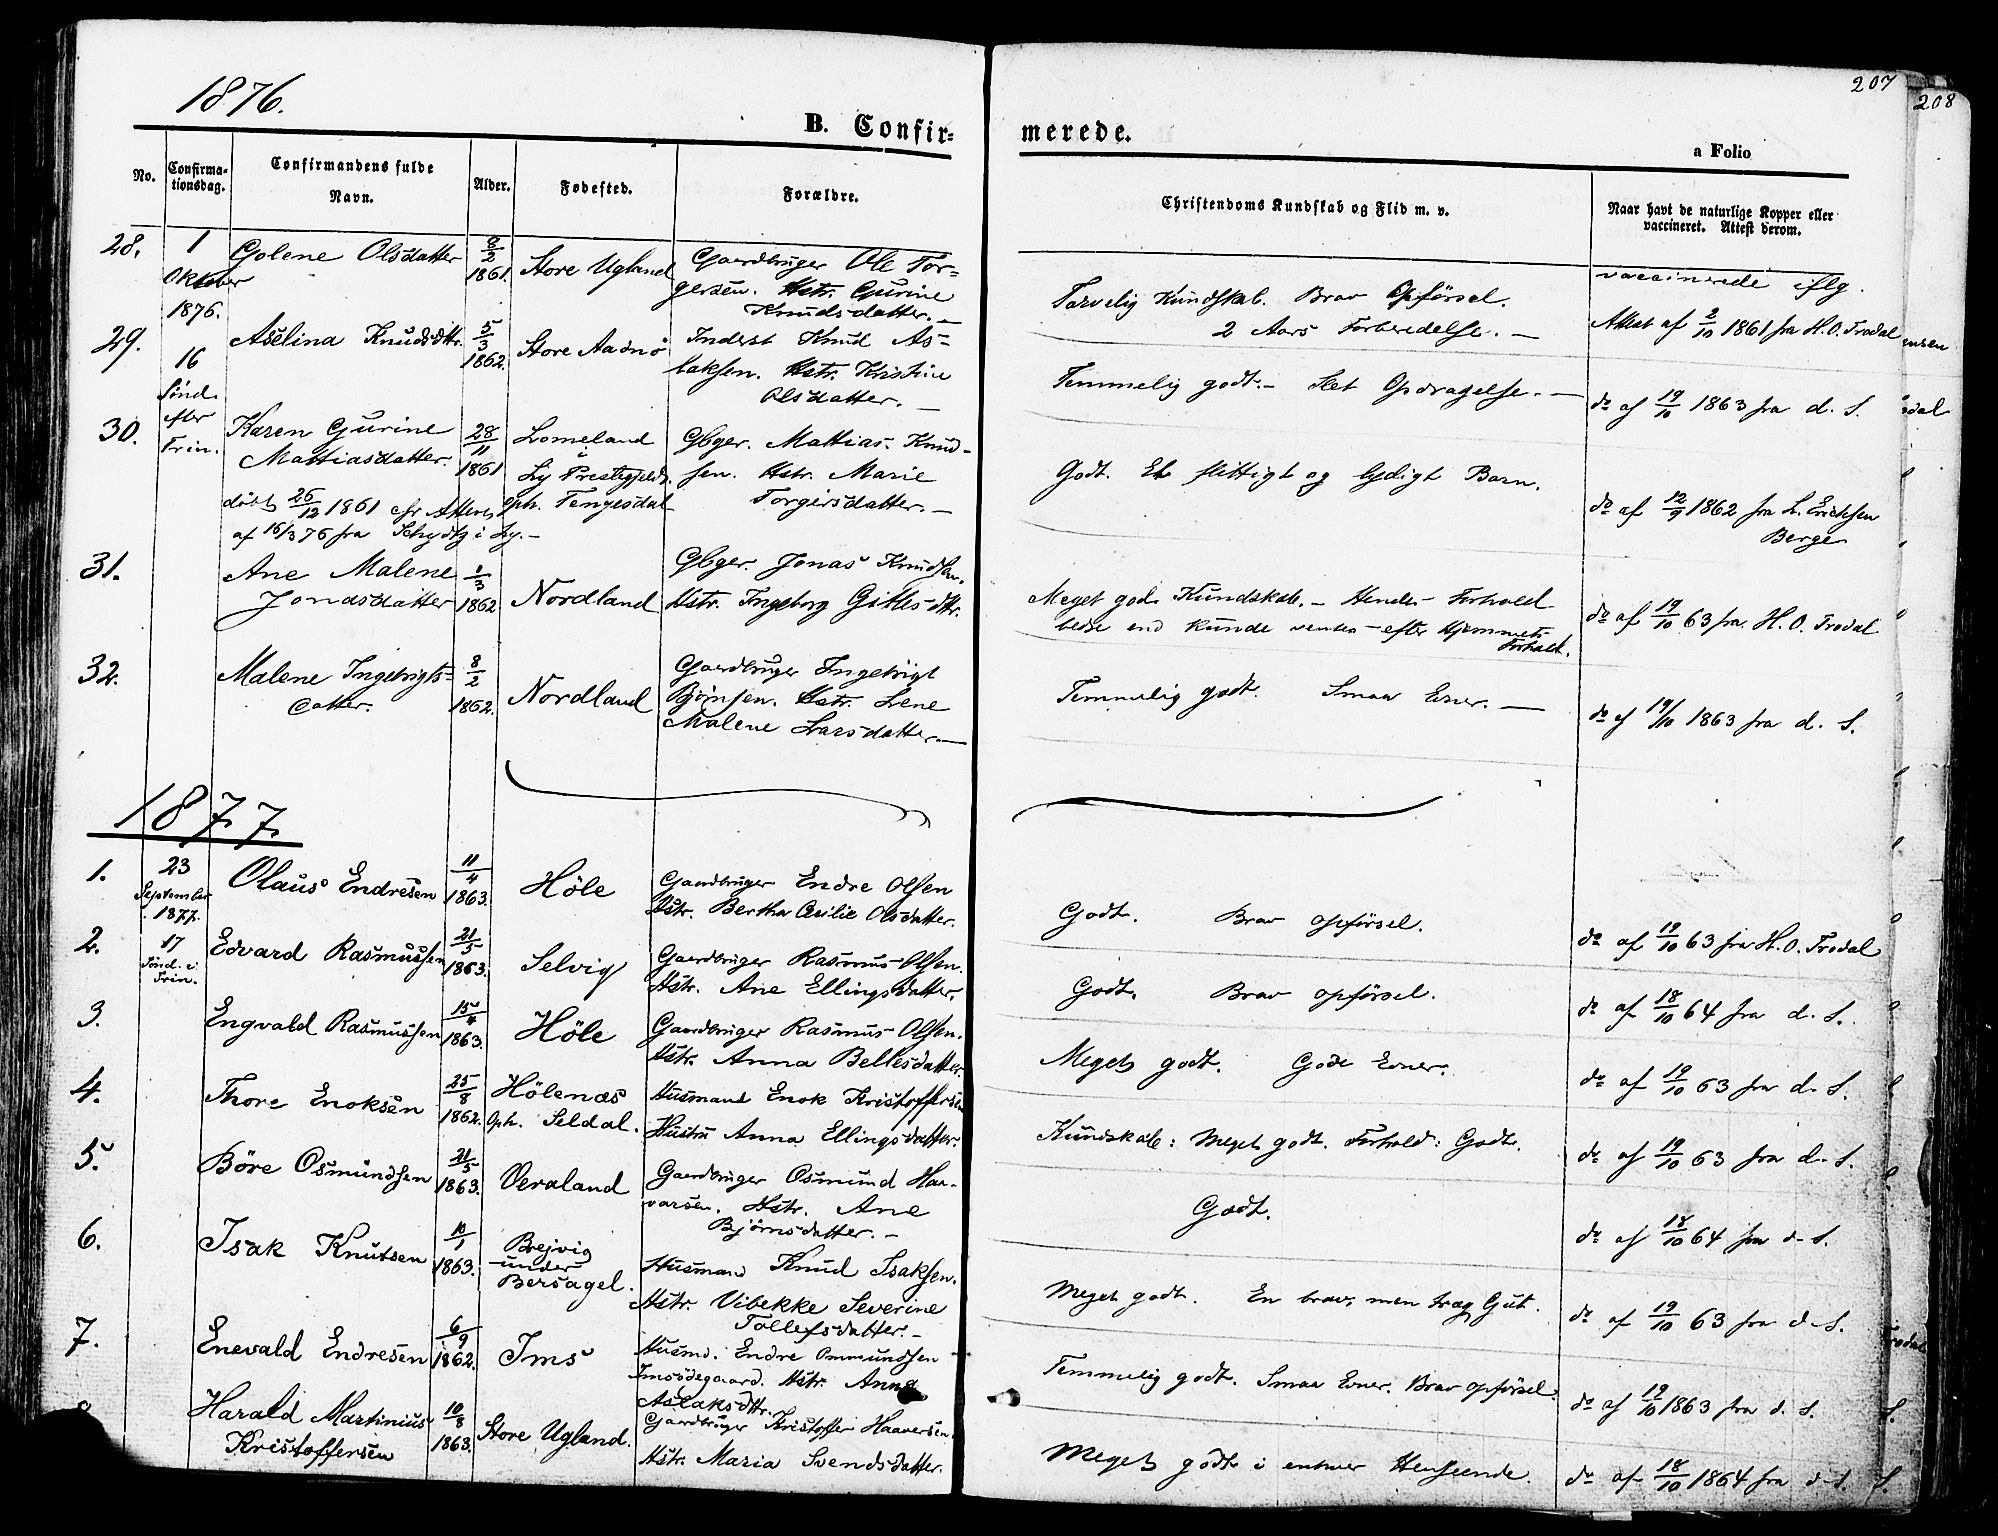 1876.
207
208
B. Confir=
merede.
a Folio
No.
Confirma-
tionsdag.
Confirmandens fulde
Navn.
Alder.
Fødested.
Forældre.
Christendoms Kundskab og Flid m. v.
Naar havt de naturlige Kopper eller
vaccineret. Attest derom.
28.
1
Oktober
1876.
Golene Olsdatter
8/2
1861.
Store Ugland
Gaardbruger Ole Tor=
gersen. Hstr. Gurine
Knudsdatter. —
Tarvelig Kundskab. Brav Opførsel.
2 Aars Forberedelse. —
vaccinerede iflg.
Attest af 2/10 1861 fra H. O. Trodal
29.
16
Sønd.
efter
Trin.
Aselina Knudsdttr.
5/3
1862.
Store Aadnø
Inderst Knud As=
laksen. Hstr. Kristine
Olsdatter. —
Temmelig godt. — Slet Opdragelse. —
do af 19/10 1863 fra d. S.
30.
Karen Gurine
Mattiasdatter.
døbt 26/12 1861 cfr Attest
af 16/3 76 fra Schydtz i Ly. —
28/11
1861
Lomeland
i
Ly Prestegjeld.
Oph. Tengesdal
Gbger. Mattias Knud-
sen. Hstr. Marie
Torgersdatter. —
Godt. Et flittigt og lydigt Barn.
do af 12/9 1862 fra L. Erichsen
Berge
31.
Ane Malene
Jonasdatter
1/3
1862
Nordland
Gbger. Jonas Knudsen.
Hstr. Ingeborg Gitlesdttr.
Meget god Kundskab. — Hendes Forhold
bedre end kunde ventes efter Hjemmets
Forhold.
do af 19/10 63 fra H. O. Trodal
32.
Malene Ingebrigts=
datter.
8/2
1862.
Nordland
Gaardbruger Ingebrigt
Bjørnsen. Hstr. Lene
Malene Larsdatter. —
Temmelig godt. Smaa Evner. —
do af 19/10 1863 fra d. S.
1877.
1.
23
September
1877.
Olaus Endresen
11/4
1863.
Høle
Gaardbruger Endre Olsen
Hstr. Bertha Cecilie Olsdatter.
Godt. Brav opførsel.
do af 19/10 63 fra H. O. Trodal
2.
17
Sønd. e.
Trin.
Edvard Rasmussen
21/5
1863.
Selvig
Gaardbruger Rasmus Olsen.
Hstr. Ane Ellingsdatter.
Godt. Brav opførsel.
do af 18/10 64 fra d. S.
3.
Engvald Rasmussen
15/4
1863.
Høle
Gaardbruger Rasmus Olsen.
Hstr. Anna Bellesdatter.
Meget godt. Gode Evner.
do af 19/10 63 fra d. S.
4.
Thore Enoksen
25/8
1862.
Hølenæs
Oph. Seldal.
Husmand Enok Kristoffersen
Hustru Anna Ellingsdatter.
Kundskab: meget godt. Forhold: Godt.
do af 19/10 63 fra d. S.
5.
Børe Osmundsen
21/5
1863.
Veraland
Gaardbruger Osmund Haa-
varsen. Hstr. Ane
Bjørnsdatter. —
Godt.
do af 18/10 64 fra d. S.
6.
Isak Knutsen
10/1
1863.
Brejvig
under
Bersagel.
Husmand Knud Isaksen.
Hstr. Vibekke Severine
Tollefsdatter. —
Meget godt. En brav, men træg Gut.
do af 19/10 63 fra d. S.
7.
Enevald Endresen
6/9
1862.
Ims
Husmd. Endre Ommundsen
Imsødegaard. Hstr. Anna
Aslaksdttr.
Temmelig godt. Smaa Evner. Brav opførsel.
do af 19/10 1863 fra d. S.
Harald Martinius
Kristoffersen
10/8
1863.
Store Ugland.
Gaardbruger Kristoffer Haaversen.
Hstr. Maria Svendsdatter.
Meget godt i enhver Henseende.
do af 18/10 1864 fra d. S.